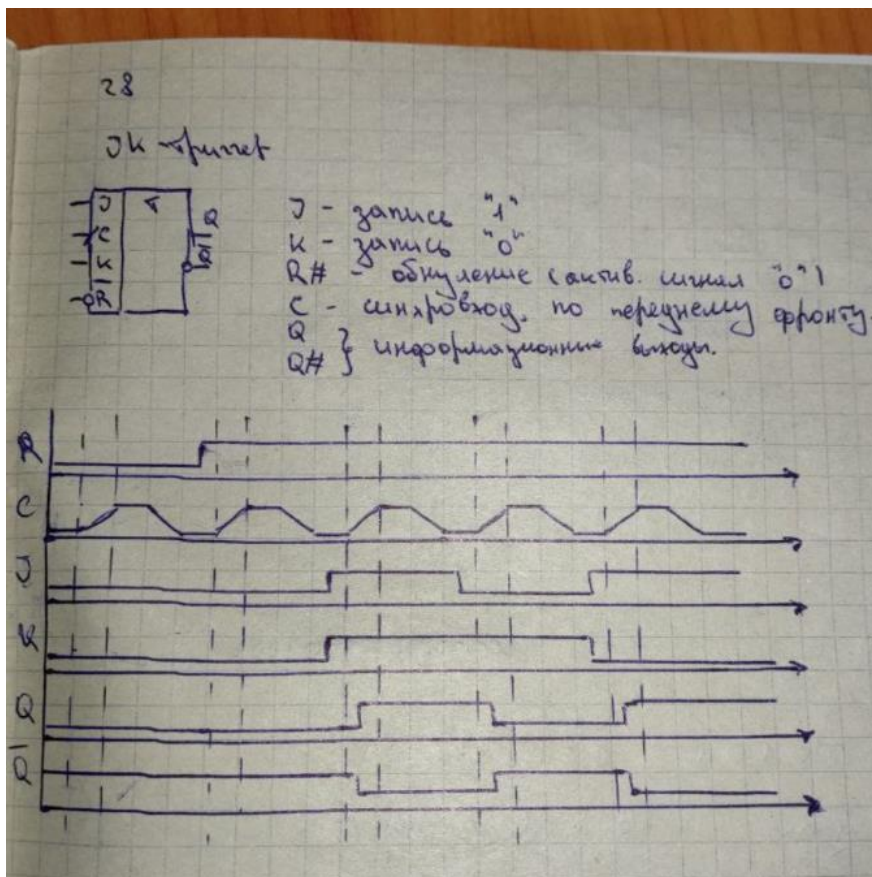 28
JK триггер
J T Q
C
K Q
R
J - запись "1"
K - запись "0"
R# - обнуление (актив. сигнал "0")
C - синхровход, по переднему фронту.
Q
Q# } информационные выходы.
R
C
J
K
Q
Q̅